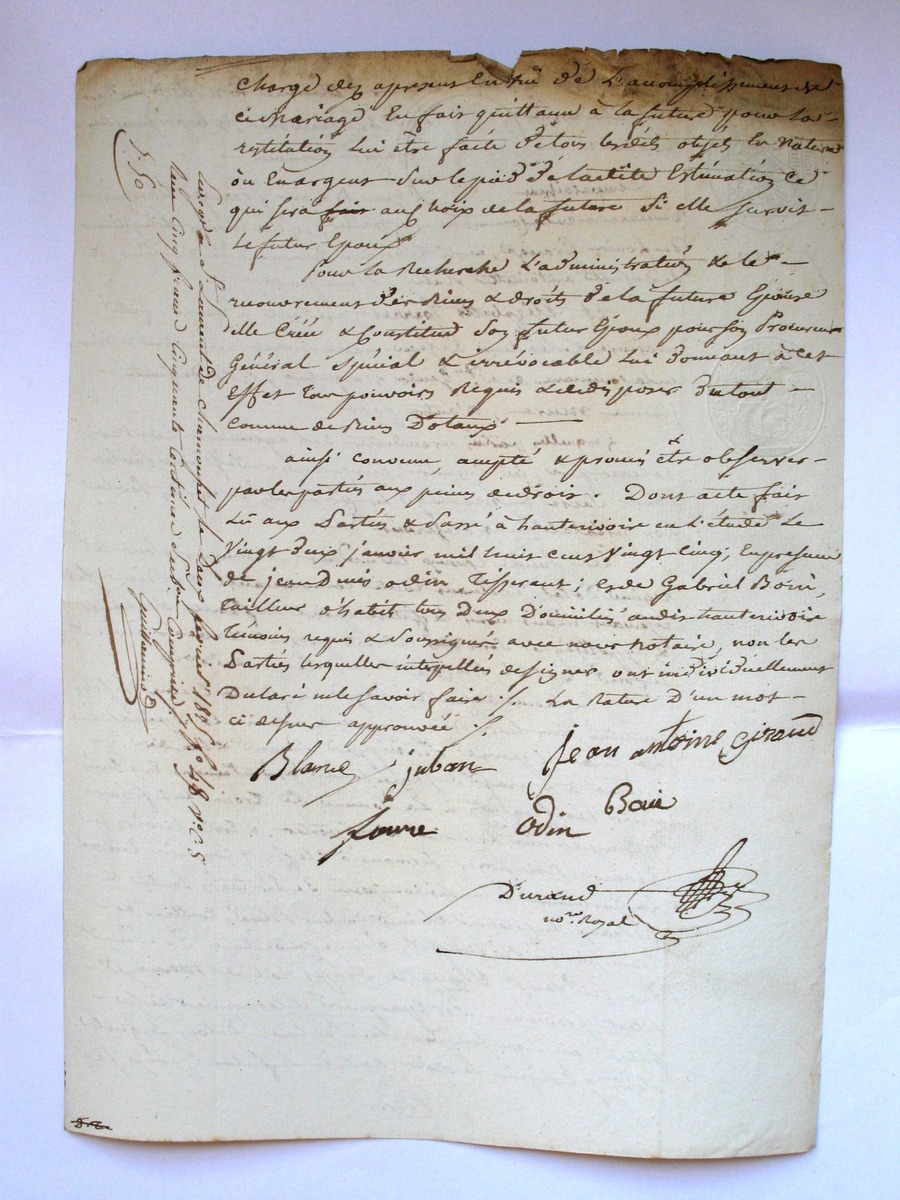 chargé dez apresent En vüe de L'accomplissement de
ce Mariage En fait quittance à la future pour La
restitution lui être faite de tous lesdits objets En Nature
ou En argent sur le pied de ladite Estimation Ce
qui sera fair au choix de la future Si elle survit
Le futur Epoux
Pour La Recherche L'administration & le
recouvrement des Biens & droits de la future Epouse
elle Créé & Constitue Son futur Epoux pour son Procureur
Général spécial & irrévocable Lui donnant à cet
Effet tous pouvoirs Requis & de disposer du tout
comme de Biens Dotaux
ainsi convenu, accepté & promis être observer
par les parties aux peines de droit. Dont acte fait
Lu aux Parties & Passé à hauterivoire en L'étude Le
Vingt deux janvier mil huit cent Vingt Cinq, En presence
de jean Denis odin Tisserant; & de Gabriel Boin,
Tailleur d'habits tous Deux Domiciliés audit hauterivoire
Témoins requis & Soussignés avec nous Notaire, non les
Parties lesquelles interpellés de signer ont individuellement
Déclaré ne le Savoir faire ./. La Rature D'un mot
ci dessus approuvée ./.
Blanc juban Jean antoine Giraud
favre odin Boin
Durand
no.re Royal
5. 50
St Laurent de Chamousset le Douze fevrier 1825 fo 48 Vo c 5
Cinq francs Cinquante Centimes
Guillermin